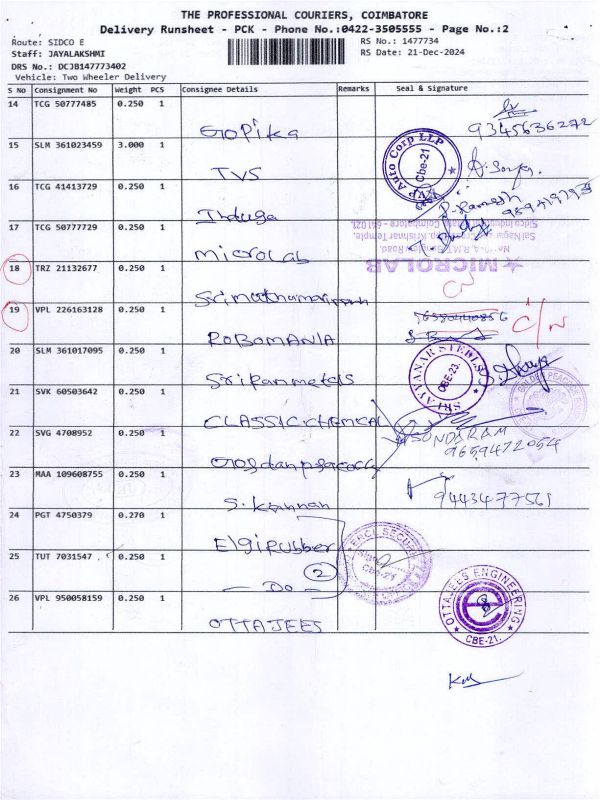 THE PROFESSIONAL COURIERS, COIMBATORE
Delivery Runsheet - PCK - Phone No.:0422-3505555 - Page No.:2
Route: SIDCO E
RS No.: 1477734
Staff: JAYALAKSHMI
RS Date: 21-Dec-2024
DRS No.: DCJB147773402
Vehicle: Two Wheeler Delivery
S No Consignment No Weight PCS Consignee Details Remarks Seal & Signature
14 TCG 50777485 0.250 1
GOPika
9345636272
15 SLM 361023459 3.000 1
TVS
Auto Corp LLP
Cbe-21
16 TCG 41413729 0.250 1
Induga
P. Ramesh
17 TCG 50777729 0.250 1
microLab
MICROLAB
18 TRZ 21132677 0.250 1
C/N
19 VPL 226163128 0.250 1
ROBOMANIA
C/N
20 SLM 361017095 0.250 1
Sri Ram metals
CBE-23.
21 SVK 60503642 0.250 1
CLASSIC CHEMICAL
22 SVG 4708952 0.250 1
SUNDARAM
9659472054
23 MAA 109608755 0.250 1
S. Kannan
9443477561
24 PGT 4750379 0.270 1
Elgi Rubber
25 TUT 7031547 0.250 1
- Do -
2
Cbe-21
26 VPL 950058159 0.250 1
OTTAJEES
OTTAJEES ENGINEERING
CBE-21.